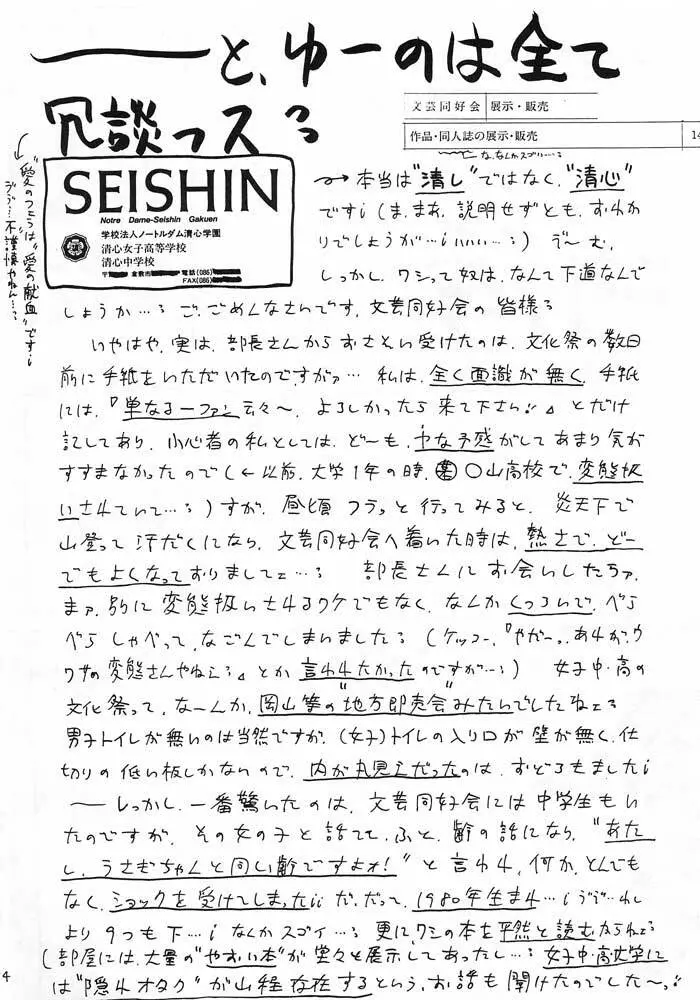 ――と、ゆーのは全て
冗談っス
文芸同好会 展示・販売
作品・同人誌の展示・販売 14
な、なんかスゴい…
SEISHIN
Notre Dame-Seishin Gakuen
学校法人ノートルダム清心学園
清心女子高等学校
清心中学校
〒 倉敷市 電話(086)
FAX(086)
"愛のつどい"は"愛の献血"です
不謹慎やねん…
本当は"清し"ではなく、"清心"
です! (ま、まあ、説明せずとも、おわか
りでしょうが…!いいい…) う~む、
しっかし、ワシって奴は、なんて下道なんで
しょうか… ご、ごめんなさいです、文芸同好会の皆様
いやはや、実は、部長さんからおさそい受けたのは、文化祭の数日
前に手紙をいただいたのですがァ… 私は、全く面識が無く、手紙
には、『単なる一ファン云々~、よろしかったら来て下さい』とだけ
記してあり、小心者の私としては、ど~も、ヤな予感がしてあまり気が
すすまなかったので(←以前、大学1年の時、某〇山高校で、変態扱
いされていて…)すが、昼頃フラっと行ってみると、炎天下で
山登って汗だくになり、文芸同好会へ着いた時は、熱さで、どー
でもよくなっておりましてェ… 部長さんにお会いしたらァ、
まァ、別に変態扱いされるワケでもなく、なんかくつろいで、べら
べらしゃべって、なごんでしまいました (ケッコー、『やだーっ、あれが、ウ
ワサの変態さんやねえ』とか言われたかったのですが…) 女子中・高の
文化祭って、なーんか、岡山等の"地方即売会"みたいでしたねェ
男子トイレが無いのは当然ですが、(女子)トイレの入り口が壁が無く、仕
切りの低い板しかないので、内が丸見えだったのは、おどろきました!
――しっかし、一番驚いたのは、文芸同好会には中学生もい
たのですが、その女の子と話してて、ふと、齢の話になり、"あた
し、うさぎちゃんと同じ齢ですよォ!"と言われ、何か、とんでも
なく、ショックを受けてしまった!! だ、だって、1980年生まれ…! わし
より9つも下…! なんかスゴイ… 更に、ワシの本を平然と読むからねェ
(部屋には、大量の"やおい本"が堂々と展示してあったし… 女子中・高・大学に
は"隠れオタク"が山程存在するという、お話も聞けたのでした~っ
4